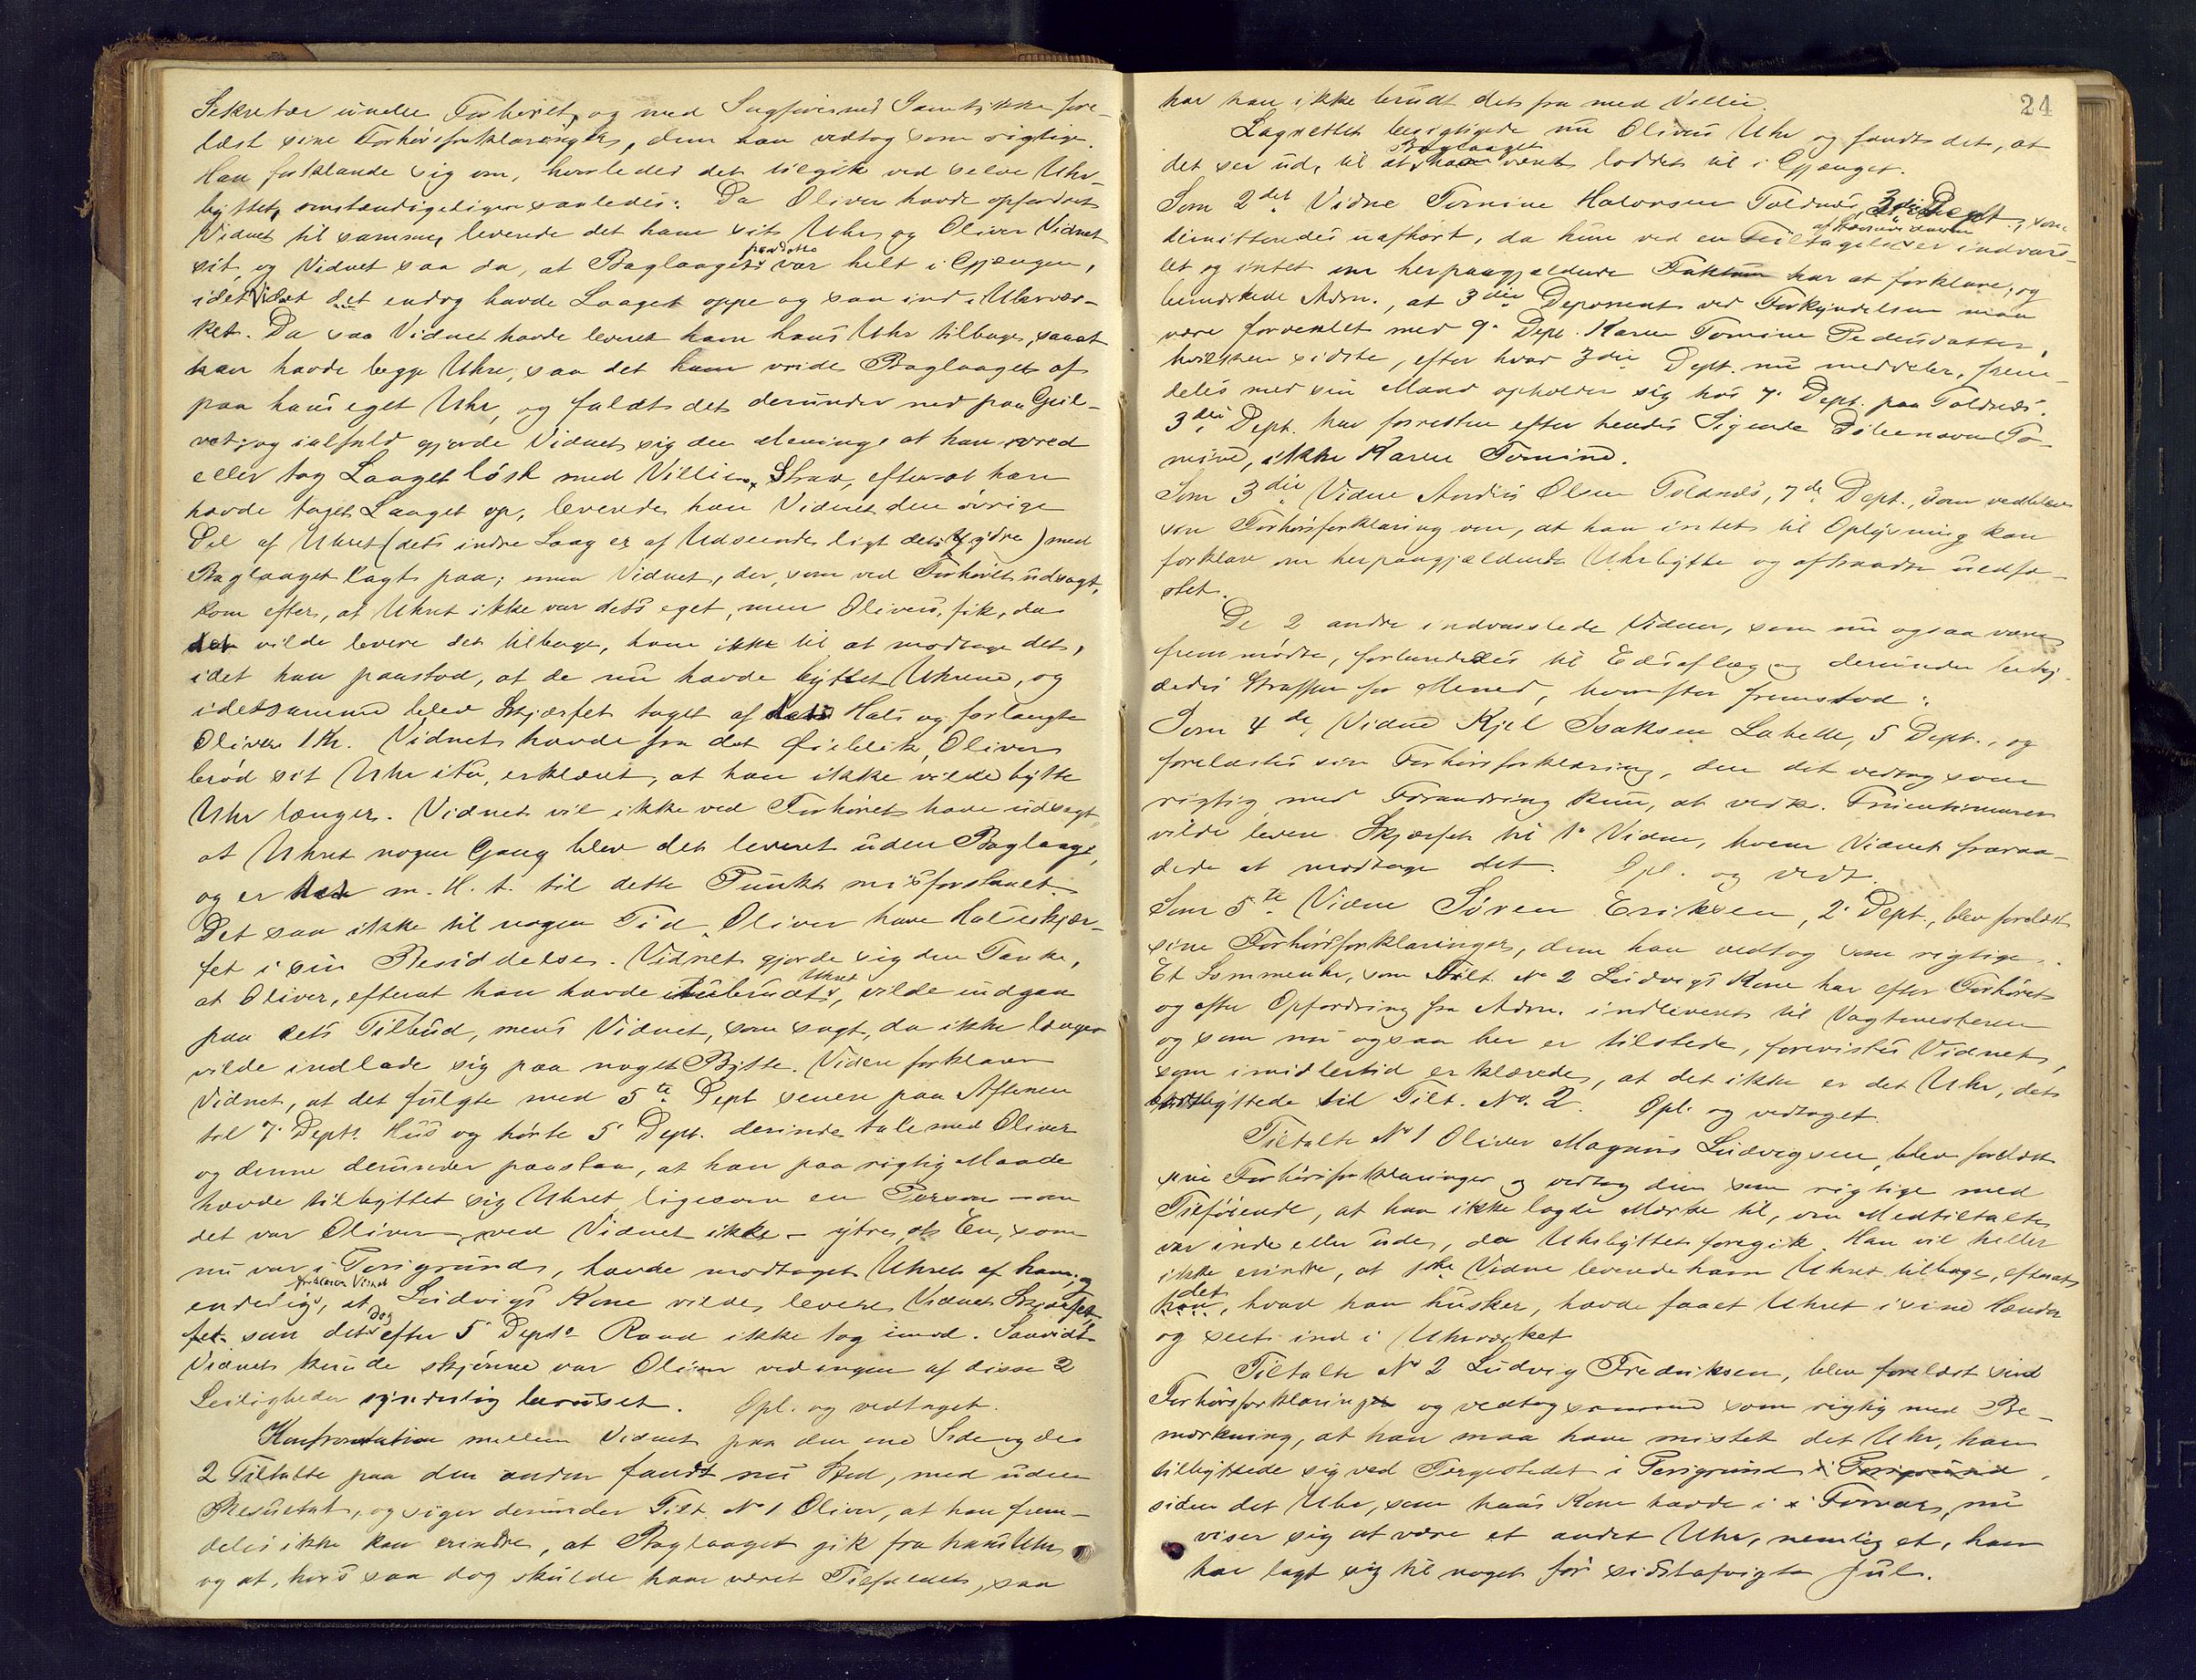 Sekretær under Forhøret, og med Sagførerens Samtykke fore-
læst sine Forhørsforklaringer, dem han vedtog som rigtige.
Han forklarede sig om, hvorledes det tilgik ved selve Uhr-
byttet, omstændigeligere saaledes: Da Oliver havde opfordret
Vidnet til samme, leverede det ham sit Uhr og Oliver Vidnet
sit, og Vidnet saa da, at Baglaaget paa dette var helt i Gjængen,
idet Vidnet endog havde Laaget oppe og saa ind i Uhrvær-
ket. Da saa Vidnet havde leveret ham hans Uhr tilbage, saaat
han havde begge Uhre, saa det ham vride Baglaaget af
paa hans eget Uhr, og faldt det derunder ned paa Gul-
vet; og ialfald gjorde Vidnet sig den Mening, at han vred
eller tog Laaget løsk med Villie. Strax, efterat han
havde taget Laaget op, leverede han Vidnet den øvrige
Del af Uhret (dets indre Laag er af Udseende ligt dets ydre) med
Baglaaget lagt paa; men Vidnet, der, som ved Forhøret udsagt,
kom efter, at Uhret ikke var dets eget, men Olivers, fik, da
det vilde levere det tilbage, ham ikke til at modtage det,
idet han paastod, at de nu havde byttet Uhrene, og
idetsamme blev Skjærfet taget af dets Hals og forlangte
Oliver 1 Kr. Vidnet havde fra det Øieblik, Oliver
brød sit Uhr itu, erklæret, at han ikke vilde bytte
Uhr længer. Vidnet vil ikke ved Forhøret have udsagt,
at Uhret nogen Gang blev det leveret uden Baglaag,
og er m. H. t. til dette Punkt misforstaaet.
Det saa ikke til nogen Tid Oliver have Halsskjær-
fet i sin Besiddelse. Vidnet gjorde sig den Tanke,
at Oliver, efterat han havde itubrudt Uhret, vilde indgaa
paa dets Tilbud, mens Vidnet, som sagt, da ikke længer
vilde indlade sig paa noget Bytte. Videre forklarer
Vidnet, at det fulgte med 5te Dept. senere paa Aftenen
til 7. Depts. Hus og hørte 5 Dept. derinde tale med Oliver
og denne derunder paastaa, at han paa rigtig Maade
havde tilbyttet sig Uhret, ligesom en Person – om
det var Oliver, ved Vidnet ikke – ytre, at En, som
nu var i Porsgrund, havde modtaget Uhret af ham; og
endelig, forklarer Vidnet, at Ludvigs Kone vilde levere Vidnet Skjær-
fet som det dog efter 5 Depts. Raad ikke tog imod. Saavidt
Vidnet kunde skjønne var Oliver ved ingen af disse 2
Leiligheder synderlig beruset. Opl. og vedtaget.
Konfrontation mellem Vidnet paa den ene Side og de
2 Tiltalte paa den anden fandt nu Sted, med uden
Resultat, og siger derunder Tilt. No 1 Oliver, at han frem-
deles ikke kan erindre, at Baglaaget gik fra hans Uhr
og at, hvis saa dog skulde have været Tilfældet, saa
24
har han ikke brudt det fra med Villie.
Lagrettet besigtigede nu Olivers Uhr og fandt det, at
det ser ud, til at Baglaaget har været loddet til i Gjænget.
Som 2det Vidne Tomine Halvorsen Toldnæs, 3die Dept., som
dimitteredes uafhørt, da hun ved en Feiltagelse er indvars-
let og intet om herpaagjældende Faktum har at forklare; og
bemærkede Adm., at 3die Deponent ved Forkyndelsen maa
være forvexlet med 9. Dept. Karen Tomine Pedersdatter,
hvilken sidste, efter hvad 3die Dept. nu meddeler, frem-
deles med sin Mand opholder sig hos 7. Dept. paa Toldnæs.
3die Dept. har forresten efter hendes Sigende Døbenavn To-
mine, ikke Karen Tomine.
Som 3die Vidne Andrias Olsen Toldnæs, 7de Dept., som vedblev
sin Forhørsforklaring om, at han intet til Oplysning kan
forklare om herpaagjældende Uhrbytte og aftraadte uedfæ-
stet.
De 2 andre indvarslede Vidner, som nu ogsaa vare
fremmødte, forberededes til Edsaflæg og derunder betyd-
dedes Straffen for Mened, hvorefter fremstod:
Som 4de Vidne Kjel Isaksen Laholle, 5 Dept., og
forelæstes sin Forhørsforklaring, den det vedtog som
rigtig, med Forandring kun, at vedk. Fruentimmer
vilde levere Skjærfet til 1. Vidne, hvem Vidnet fraraa-
dede at modtage det. Opl. og vedt.
Som 5te Vidne Søren Eriksen, 2. Dept., blev forelæst
sine Forhørsforklaringer, dem han vedtog som rigtige.
Et Lommeuhr, som Tilt. No 2 Ludvigs Kone har efter Forhøret
og efter Opfordring fra Adm. indleveret til Vagtmesteren
og som nu ogsaa her er tilstede, forevistes Vidnet,
som imidlertid erklærede, at det ikke er det Uhr, det
bortbyttede til Tilt. No. 2. Opl. og vedtaget.
Tiltalte No 1 Oliver Magnus Ludvigsen, blev forelæst
sine Forhørsforklaringer og vedtog dem som rigtige med
Tilføiende, at han ikke lagde Mærke til, om Medtiltalte
var inde eller ude, da Uhrbyttet foregik. Han vil heller
ikke erindre, at 1ste Vidne leverede ham Uhret tilbage, efterat
det, hvad han husker, havde faaet Uhret i sine Hænder
og seet ind i Uhrværket
Tiltalte No 2 Ludvig Fredriksen, blev forelæst sine
Forhørsforklaring og vedtog samme som rigtig med Be-
mærkning, at han maa have mistet det Uhr, han
tilbyttede sig ved Fergestedet i Porsgrund,
siden det Uhr, som hans Kone havde i Forvar, nu
viser sig at være et andet Uhr, nemlig et, han
har lagt sig til noget før sidstafvigte Jul.